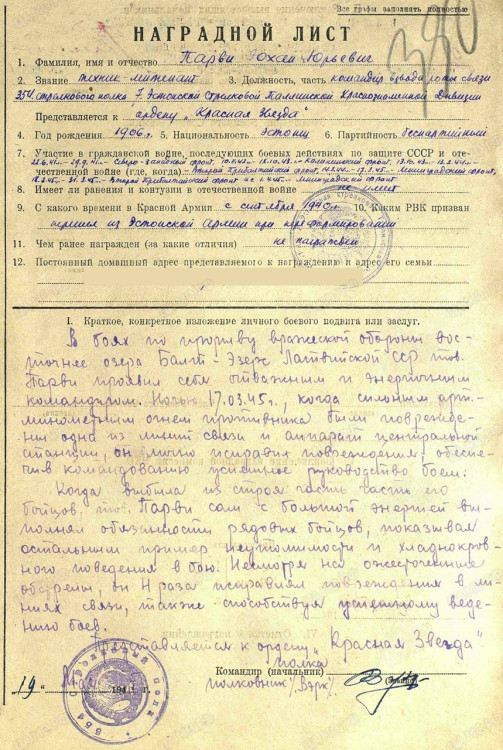 Все графы заполнять полностью
380
НАГРАДНОЙ ЛИСТ
1. Фамилия, имя и отчество Парви Юхан Юрьевич
2. Звание техник-лейтенант 3. Должность, часть командир взвода роты связи
354 стрелкового полка 7 Эстонской Стрелковой Таллинской Краснознаменной Дивизии
Представляется к ордену „Красная Звезда"
4. Год рождения 1906 г. 5. Национальность эстонец 6. Партийность беспартийный
7. Участие в гражданской войне, последующих боевых действиях по защите СССР и оте-
чественной войне (где, когда)
8. Имеет ли ранения и контузии в отечественной войне не имеет
9. С какого времени в Красной Армии с сентября 1940 г. 10. Каким РВК призван
перешел из Эстонской Армии при реформировании
11. Чем ранее награжден (за какие отличия) не награжден
12. Постоянный домашний адрес представляемого к награждению и адрес его семьи
I. Краткое, конкретное изложение личного боевого подвига или заслуг.
В боях по прорыву вражеской обороны вос-
точнее озера Балти-Эзерс Латвийской ССР тов.
Парви проявил себя отважным и энергичным
командиром. Ночью 17.03.45г., когда сильным арт.-
минометным огнем противника были поврежде-
ны одна из линий связи и аппарат центральной
станции, он лично исправил повреждения, обеспе-
чив командованию успешное руководство боем.
Когда выбыла из строя часть часть его
бойцов, тов. Парви сам с большой энергией вы-
полнял обязанности рядовых бойцов, показывая
остальным пример неутомимости и хладнокров-
ного поведения в бою. Несмотря на ожесточенные
обстрелы, он 4 раза исправлял повреждения в ли-
ниях связи, также способствуя успешному веде-
нию боев.
Представляется к ордену „Красная Звезда"
Командир (начальник) полка
полковник /Вэрк/
194 г.